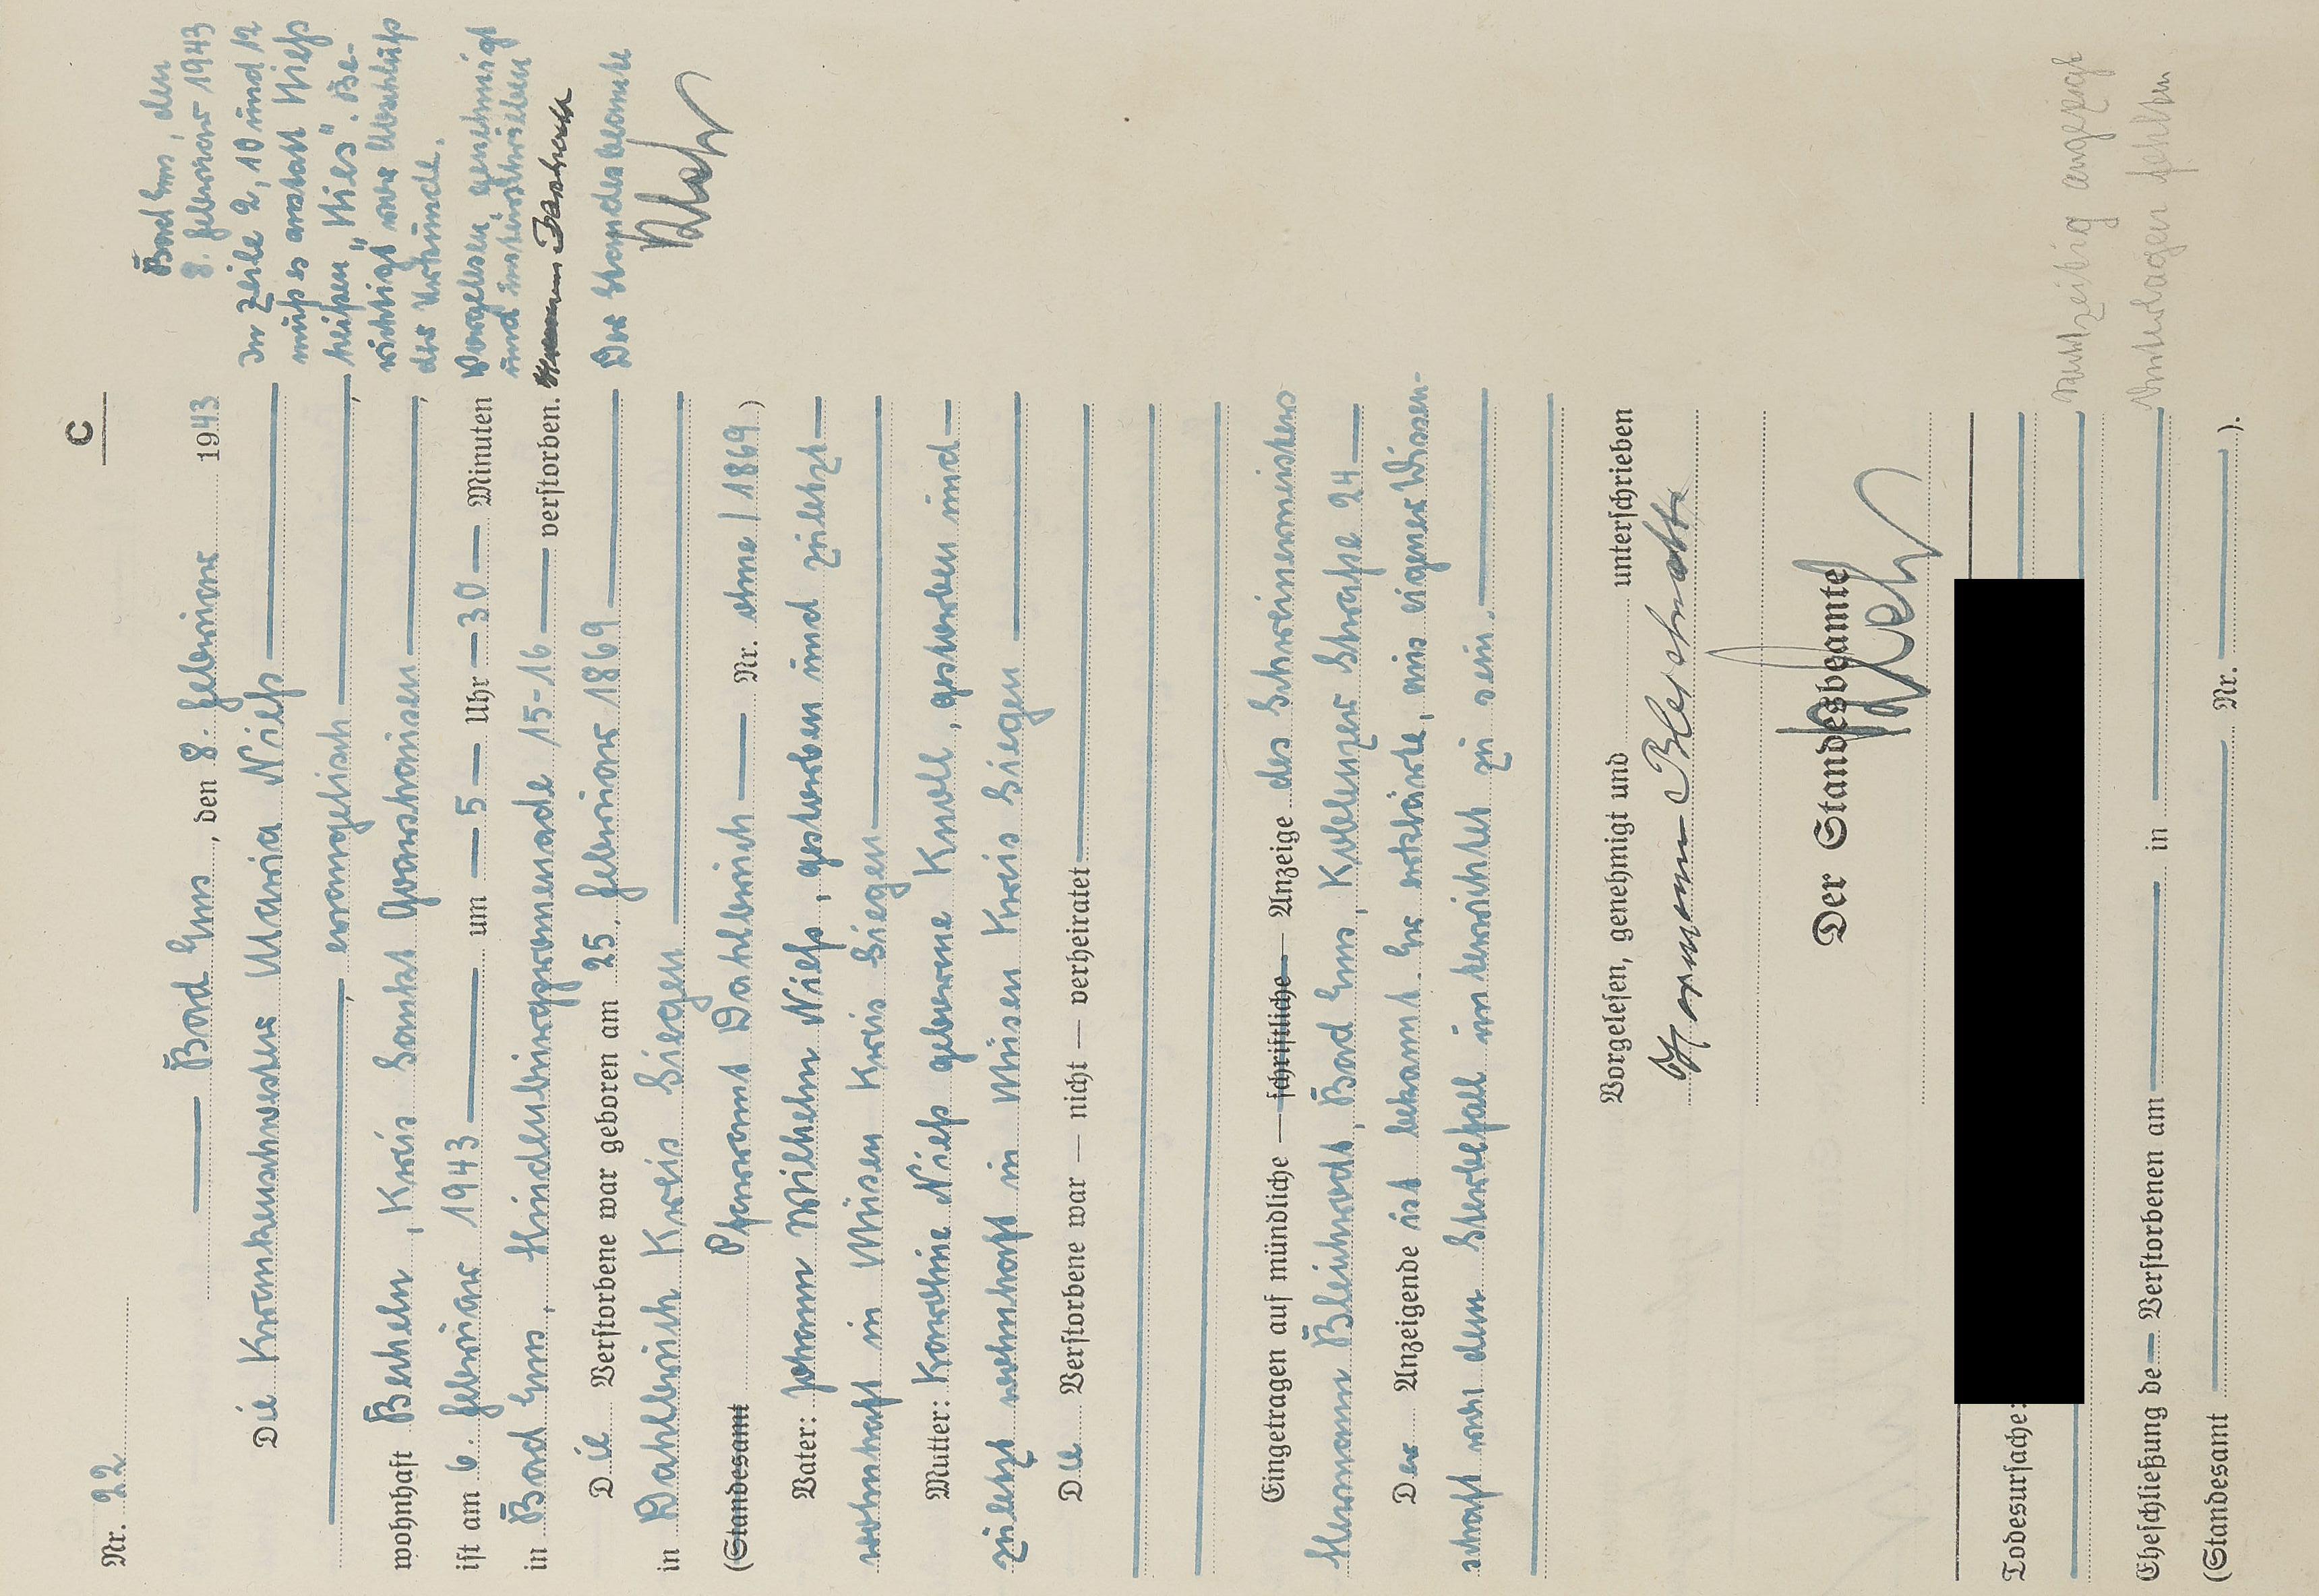 C
Nr. 22
Bad Ems, den 8. Februar 1943
Die Krankenschwester Maria Nieß
evangelisch,
wohnhaft Becheln, Kreis Sankt Goarshausen,
ist am 6. Februar 1943 um 5 Uhr 30 Minuten
in Bad Ems, Hindenburgpromenade 15-16 verstorben.
Die Verstorbene war geboren am 25. Februar 1869
in Dahlbruch Kreis Siegen
(Standesamt Pfarramt Dahlbruch Nr. ohne / 1869.)
Vater: Johann Wilhelm Nieß, gestorben und zuletzt
wohnhaft in Müsen Kreis Siegen
Mutter: Karoline Nieß geborene Knoll, gestorben und
zuletzt wohnhaft in Müsen Kreis Siegen
Die Verstorbene war — nicht — verheiratet
Eingetragen auf mündliche — schriftliche — Anzeige des Schreinermeisters
Hermann Bleutrodt, Bad Ems, Koblenzer Straße 24
Der Anzeigende ist bekannt. Er erklärte, aus eigener Wissen-
schaft von dem Sterbefall unterrichtet zu sein.
Vorgelesen, genehmigt und unterschrieben
Hermann
Der Standesbeamte
Todesursache:
Eheschließung de Verstorbenen am in
(Standesamt Nr. ).
Bad Ems, den
8. Februar 1943
In Zeile 2, 10 und 12
muß es anstatt Nieß
heißen „Nies". Be-
richtigt vor Abschluß
der Urkunde.
Vorgelesen, genehmigt
und unterschrieben
Hermann
Der Standesbeamte
angezeigt
Unterlagen fehlten